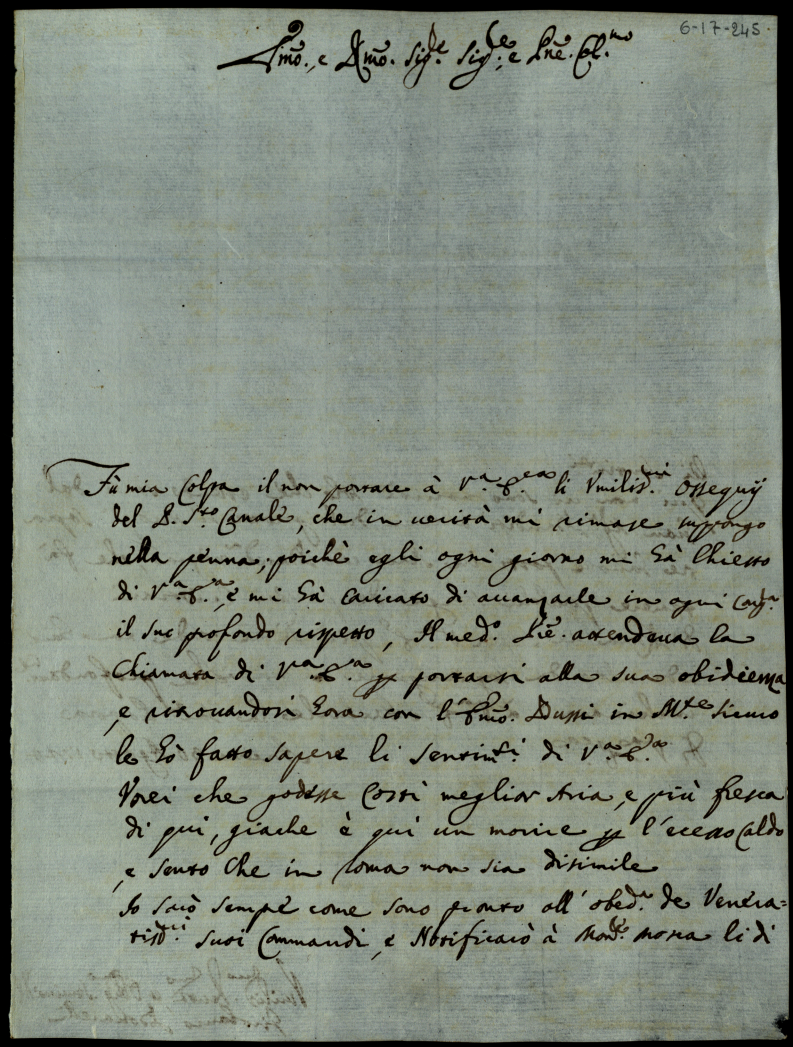 6-17-245.
Illmo., e Rmo. Sigre. Sigre., e Pne. Col.mo
Fù mia Colpa il non portare à V.a E.za li Vmiliss.mi Ossequÿ
del S.r Canale, che in uerità mi rimase suppongo
nella penna, poichè egli ogni giorno mi hà Chiesto
di V.a E.a, e mi hà caricato di auanzarle in ogni
il suo profondo rispetto, Il med.o attendeua la
Chiamata di V.a E.a per portarsi alla sua obidienza
, e ritrouandosi hora con l' Bussi in M.te sicuro
le hò fatto sapere li sentim.ti di V.a E.a
Vorei che godesse Costì meglior Aria, e più fresca
di quì, giache è quì un morire per l'ecesso Caldo
, e sento che in roma non sia disimile
Io sarò sempre come sono pronto all'obed.a de Venera=
tiss.mi suoi Commandi, e Notificarò à Mons.re Mosca li di